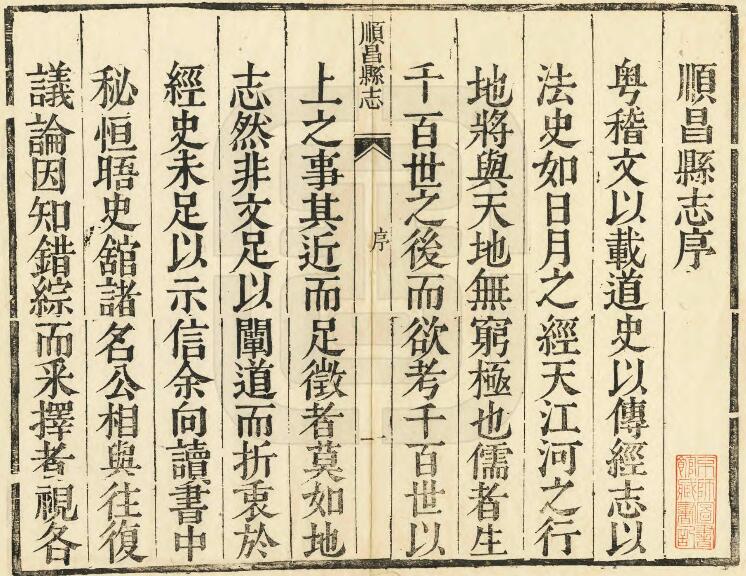 順昌縣志序
粤稽文以載道史以傳經志以
法史如日月之經天江河之行
地將與天地無窮極也儒者生
千百世之後而欲考千百世以
順昌縣志
序
一
上之事其近而足徵者莫如地
志然非文足以闡道而折衷於
經史未足以示信余向讀書中
秘恒晤史舘諸名公相與往復
議論因知錯綜而采擇者視各